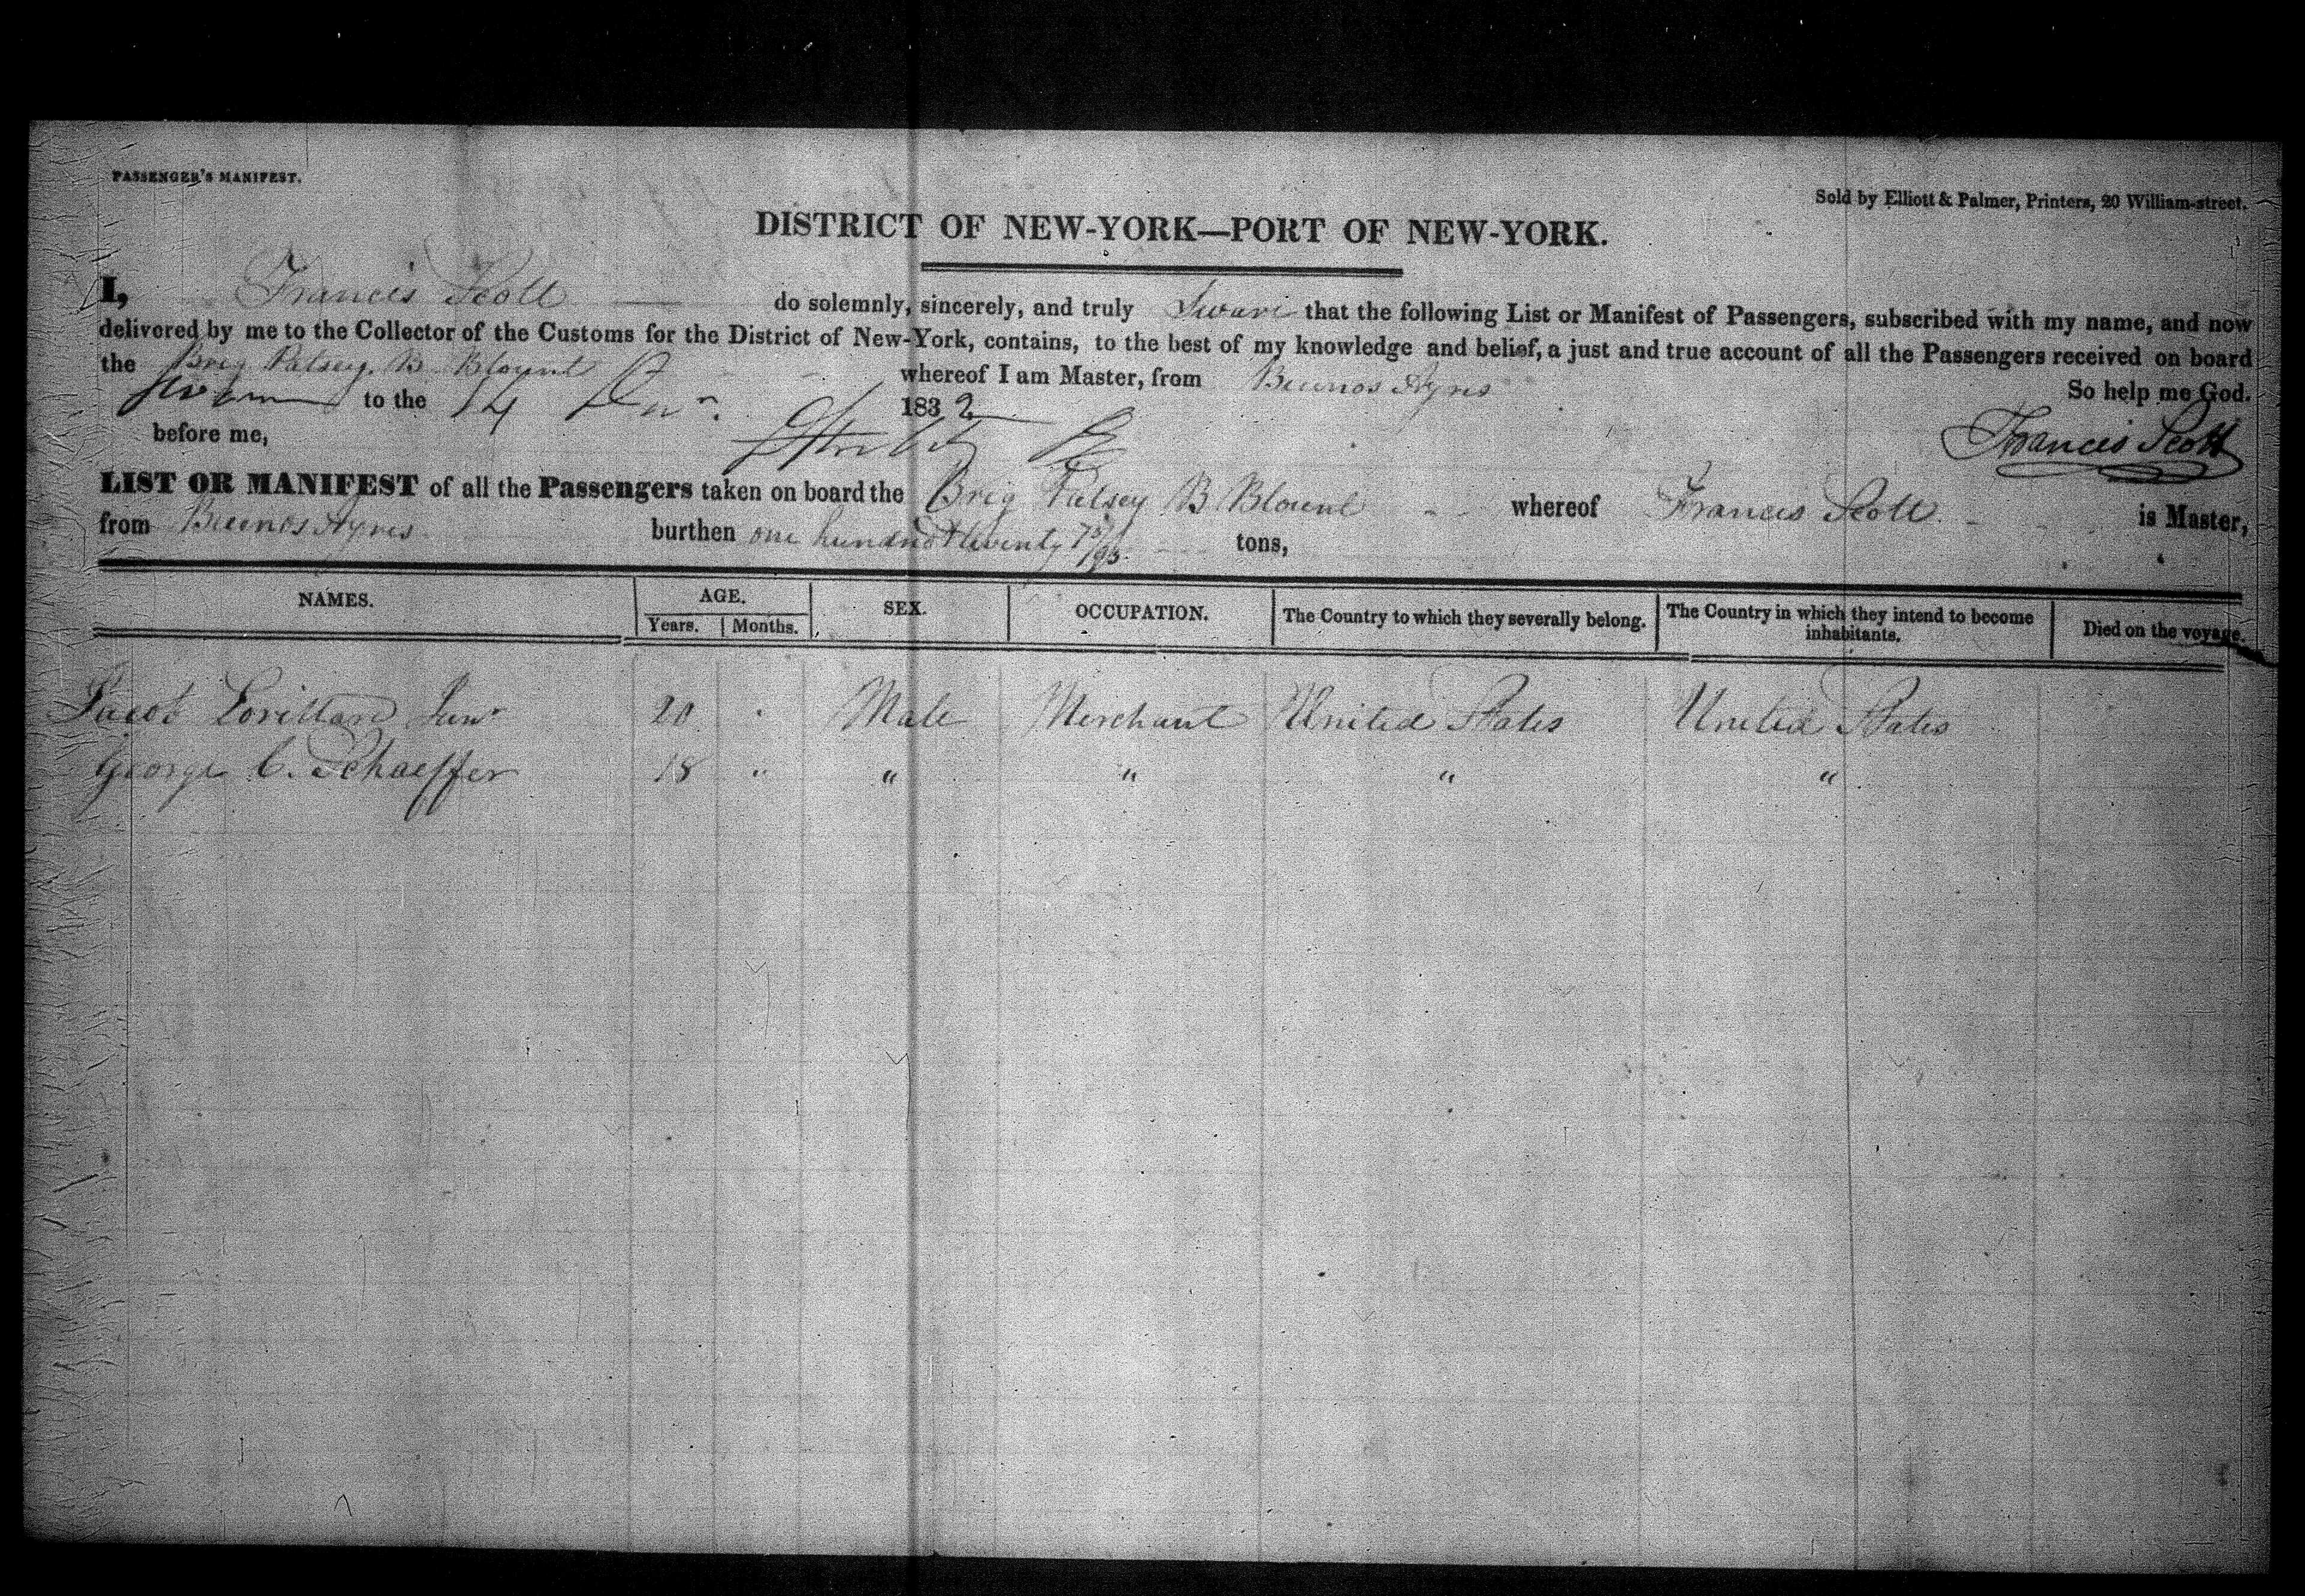 PASSENGER'S MANIFEST.
Sold by Elliott & Palmer, Printers, 20 William-street.
DISTRICT OF NEW-YORK—PORT OF NEW-YORK.
I, Francis Scott do solemnly, sincerely, and truly Swear that the following List or Manifest of Passengers, subscribed with my name, and now
delivered by me to the Collector of the Customs for the District of New-York, contains, to the best of my knowledge and belief, a just and true account of all the Passengers received on board
the Brig Patsey B Blount whereof I am Master, from Buenos Ayres
So help me God.
Sworn to the 14 1832
before me,
Francis Scott
LIST OR MANIFEST of all the Passengers taken on board the Brig Patsey B Blount whereof Francis Scott is Master,
from Buenos Ayres burthen one hundred twenty 75/95 tons,
NAMES. AGE. SEX. OCCUPATION. The Country to which they severally belong. The Country in which they intend to become inhabitants. Died on the voyage.
Years. Months.
Jacob Lorillard Junr 20 " Male Merchant United States United States
George C. Schaeffer 18 " " " " "